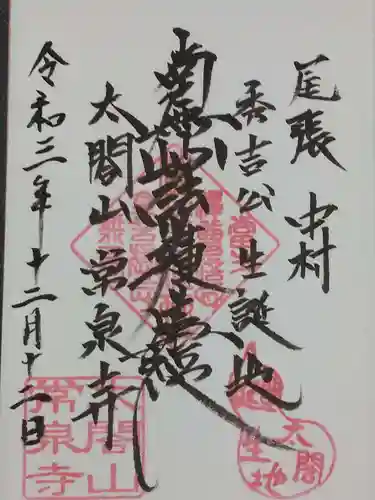 尾張 中村
秀吉公生誕地
南無妙法蓮華経
太閤山常泉寺
令和三年十二月十二日
太閤山
常泉寺
太閤
生地